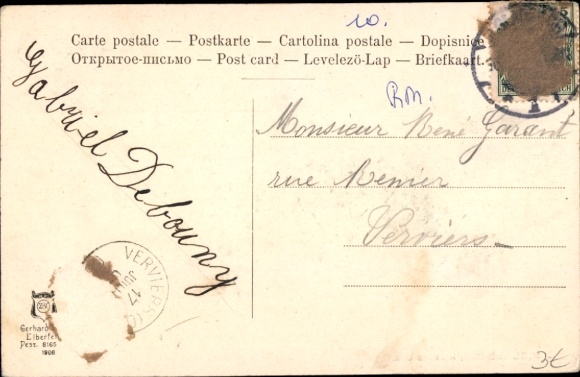 10.
Carte postale — Postkarte — Cartolina postale — Dopisnice
Открытое-письмо — Post card — Levelező-Lap — Briefkaart.
RM.
Gabriel Debouny
Monsieur René Garant
rue Renier
Verviers
VERVIERS
17
1
Gerhard
Elberfe
Dess. 8165
1906
3€